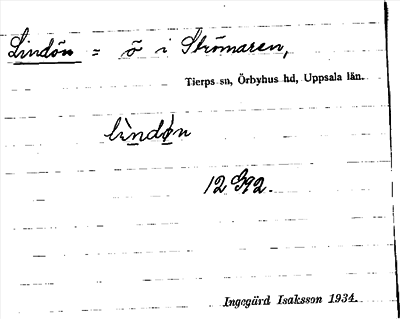 Lindön = ö i Strömaren,
Tierps sn, Örbyhus hd, Uppsala län.
lìndø̀n
12 G 92.
Ingegärd Isaksson 1934.